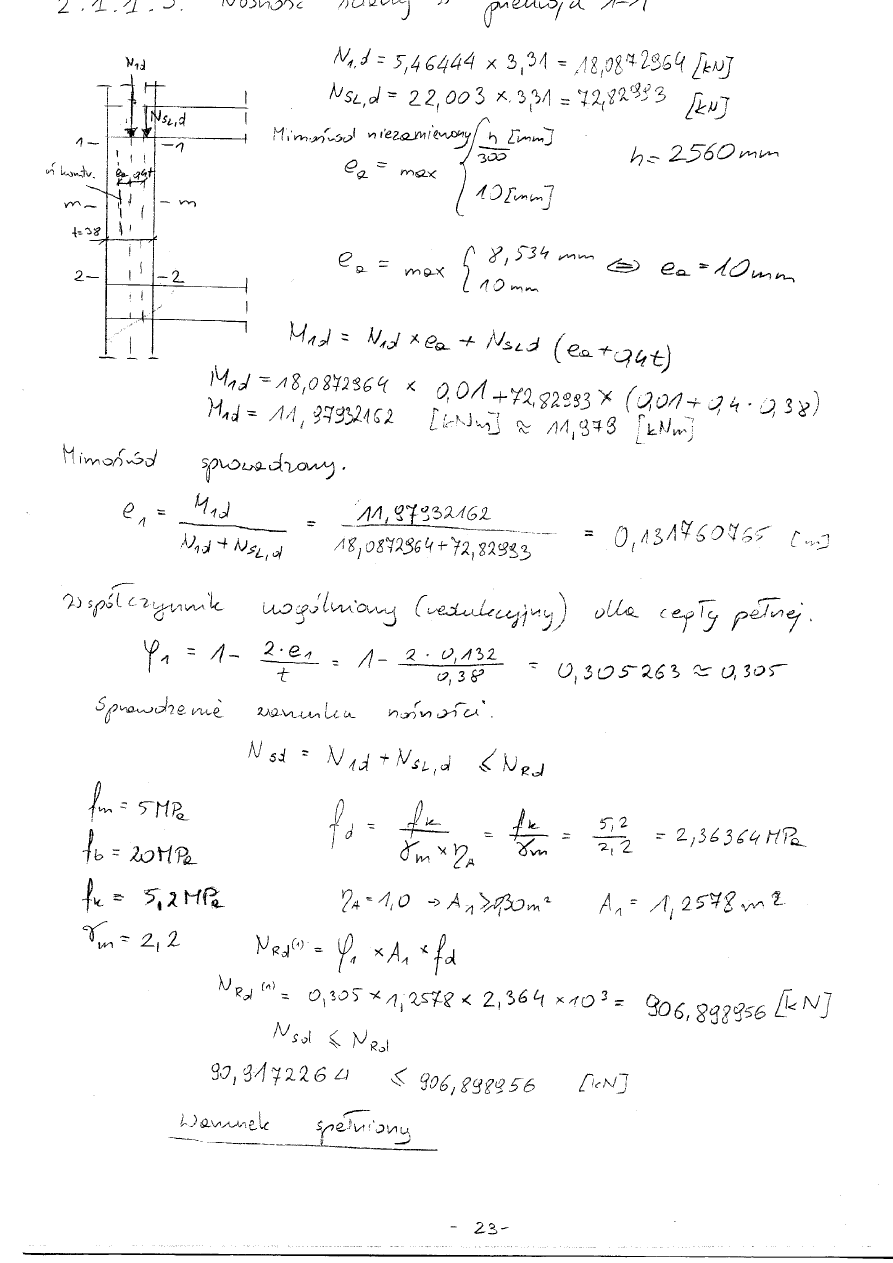 2.1.1.3. Nośność ściany w przekroju 1-1
N1d
NSL,d
1- -1
ea 0,4t
m- -m
t=38
2- -2
N1,d = 5,46444 × 3,31 = 18,0872964 [kN]
NSL,d = 22,003 × 3,31 = 72,82993 [kN]
Mimośród niezamierzony
ea = max { h/300 [mm] 10 [mm] h = 2560 mm
ea = max { 8,534 mm 10 mm ⇔ ea = 10mm
M1d = N1d × ea + NSLd (ea + 0,4t)
M1d = 18,0872964 × 0,01 + 72,82993 × (0,01 + 0,4 · 0,38)
M1d = 11,97932162 [kNm] ≈ 11,979 [kNm]
Mimośród sprowadzony.
e1 = M1d / (N1d + NSL,d) = 11,97932162 / (18,0872964 + 72,82993) = 0,131760765 [m]
Współczynnik uogólniany (redukcyjny) dla cegły pełnej.
φ1 = 1 - 2·e1/t = 1 - 2 · 0,132/0,38 = 0,305263 ≈ 0,305
Sprawdzenie warunku nośności.
Nsd = N1d + NSL,d ≤ NRd
fm = 5 MPa
fb = 20 MPa
fk = 5,2 MPa
γm = 2,2
fd = fk / (γm × ηA) = fk/γm = 5,2/2,2 = 2,36364 MPa
ηA = 1,0 → A1 ≥ 0,30m² A1 = 1,2578 m²
NRd(1) = φ1 × A1 × fd
NRd(1) = 0,305 × 1,2578 × 2,364 × 10³ = 906,898956 [kN]
Nsd ≤ NRd
90,9172264 ≤ 906,898956 [kN]
Warunek spełniony
- 23-